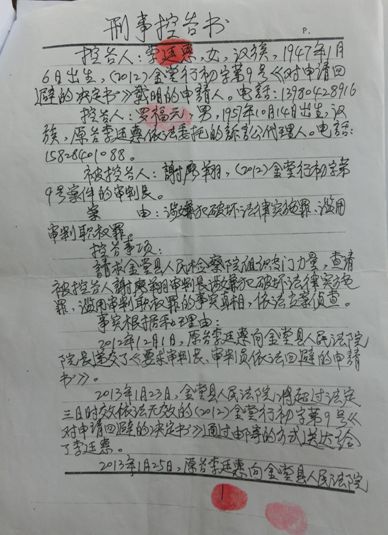 刑事控告书
控告人：李廷惠，女，汉族，1947年1月
6日出生，(2012)金堂行初字第9号《对申请回
避的决定书》载明的申请人。电话：13980428916
控告人：罗福元，男，1951年10月14日出生，汉
族，原告李廷惠依法委托的诉讼代理人。电话：
15828401088。
被控告人：謝 翔，(2012)金堂行初字第
9号案件的审判长。
案 由：涉嫌犯破坏法律实施罪、滥用
审判职权罪。
控告事项：
請求金堂县人民检察院组织专门力量，查清
被控告人謝 翔审判長涉嫌犯破坏法律实施
罪、滥用审判职权罪的事实真相，依法立案侦查。
事实根据和理由：
2012年12月1日，原告李廷惠向金堂县人民法院
院長递交了《要求审判長、审判员依法回避的申請
书》。
2013年1月23日，金堂县人民法院，将超过法定
三日时效依法无效的(2012)金堂行初字第9号《
对申請回避的决定书》通过邮寄的方式送达给
了李廷惠。
2013年1月25日，原告李廷惠向金堂县人民法院
1